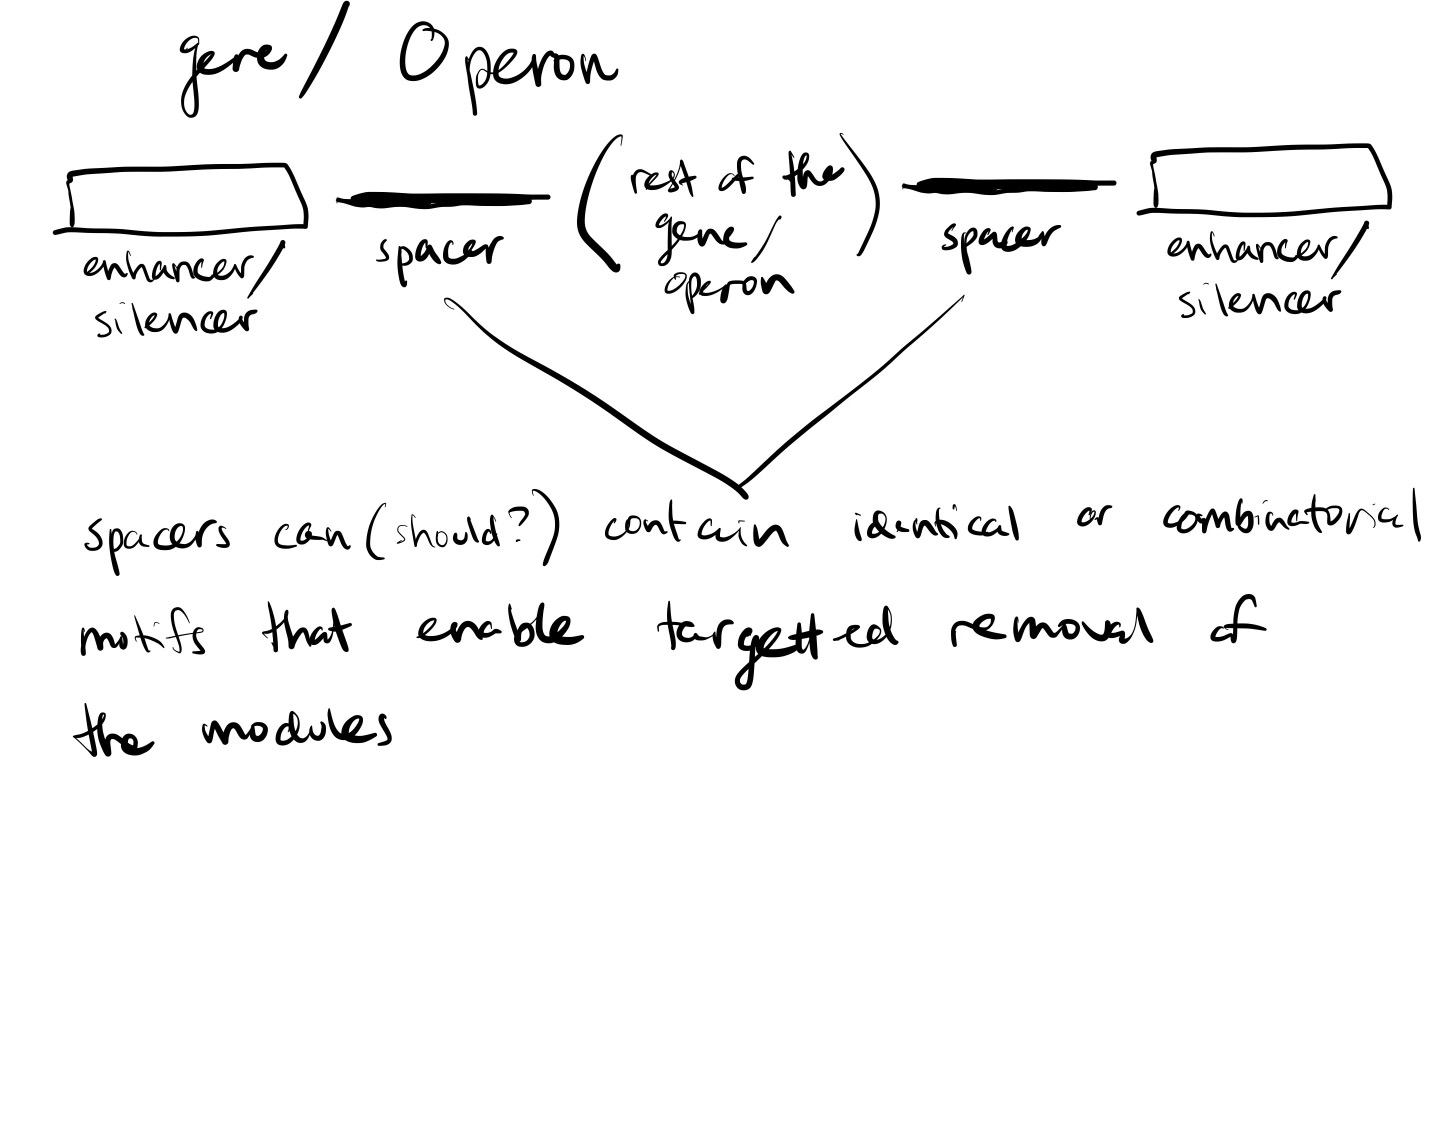 gene / Operon
enhancer/
silencer
spacer
(rest of the
gene/
operon)
spacer
enhancer/
silencer
spacers can (should?) contain identical or combinatorial
motifs that enable targetted removal of
the modules